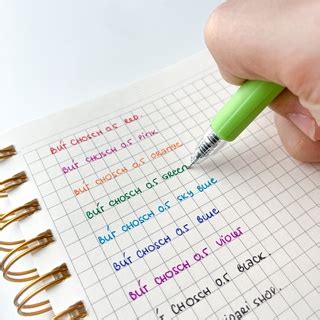 BÚT CHOSCH 0.5 RED.
BÚT CHOSCH 0.5 PINK.
BÚT CHOSCH 0.5 ORANGE
BÚT CHOSCH 0.5 GREEN
BÚT CHOSCH 0.5 SKY BLUE
BÚT CHOSCH 0.5 BLUE
BÚT CHOSCH 0.5 VIOLET
BÚT CHOSCH 0.5 BLACK.
SHOP.